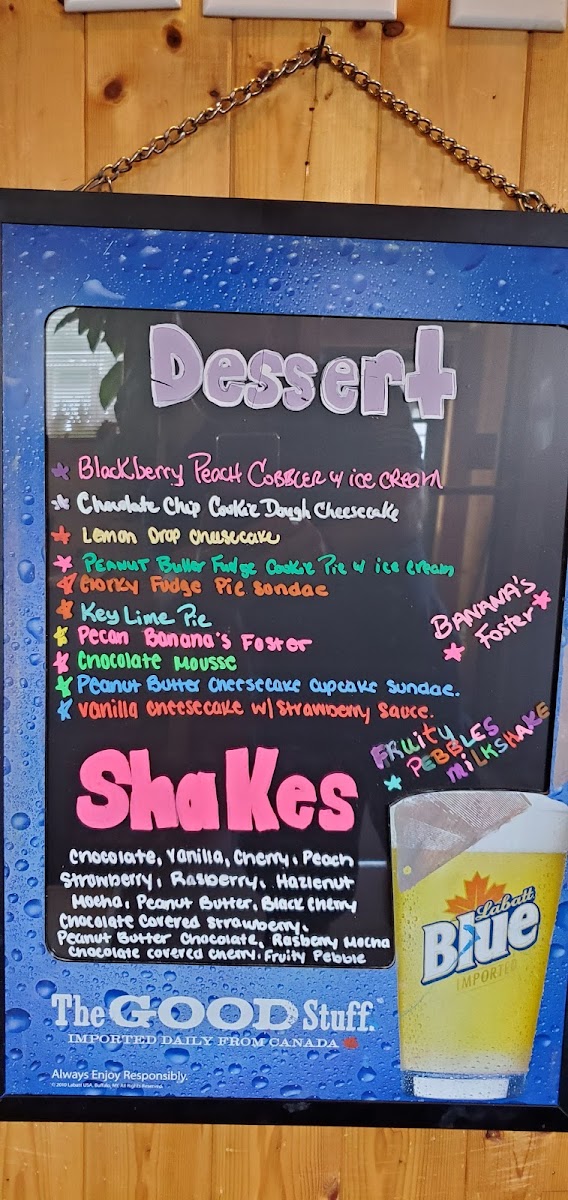 Dessert
Blackberry Peach Cobbler w ice cream
Chocolate Chip Cookie Dough Cheesecake
Lemon Drop cheesecake
Peanut Butter Fudge Cookie Pie w ice cream
Fudge Pie Sundae
Key Lime Pie
Pecan Banana's Foster
Chocolate Mousse
Peanut Butter Cheesecake cupcake sundae.
Vanilla cheesecake w/ strawberry sauce.
BANANA'S
Foster
FRUITY
PEBBLES
MILKSHAKE
Shakes
Chocolate, Vanilla, Cherry, Peach
Strawberry, Rasberry, Hazlenut
Mocha, Peanut Butter, Black Cherry
Chocolate Covered Strawberry,
Peanut Butter Chocolate, Rasberry Mocha
Chocolate covered cherry, Fruity Pebble
Labatt
Blue
IMPORTED
The GOOD Stuff.
IMPORTED DAILY FROM CANADA
Always Enjoy Responsibly.
© 2010 Labatt USA, Buffalo, NY. All Rights Reserved.